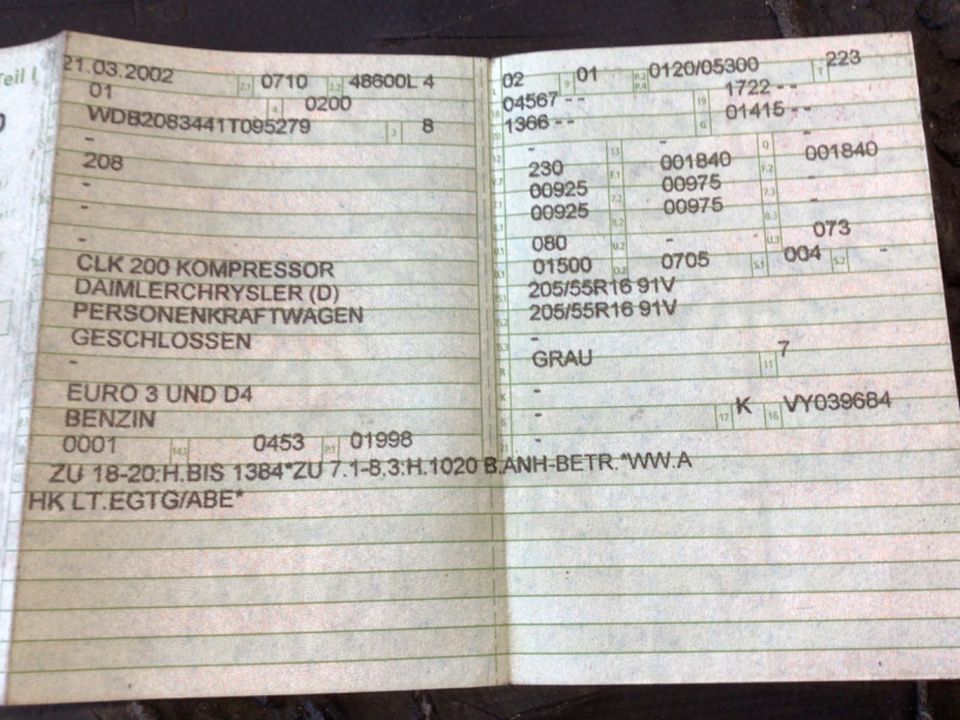 Teil I
21.03.2002 2.1 0710 2.2 48600L 4
01 4 0200
WDB2083441T095279 3 8
-
208
-
-
-
CLK 200 KOMPRESSOR
DAIMLERCHRYSLER (D)
PERSONENKRAFTWAGEN
GESCHLOSSEN
-
EURO 3 UND D4
BENZIN
0001 14.1 0453 P.1 01998
L 02 9 01 P.2 P.4 0120/05300 T 223
18 04567 -- 19 1722 --
20 1366 -- G 01415 --
12 - 13 - Q -
V.7 230 F.1 001840 F.2 001840
7.1 00925 7.2 00975 7.3 -
8.1 00925 8.2 00975 8.3 -
U.1 080 U.2 - U.3 073
O.1 01500 O.2 0705 S.1 004 S.2 -
15.1 205/55R16 91V
15.2 205/55R16 91V
15.3 -
R GRAU 11 7
K -
- 17 K 16 VY039684
21 -
ZU 18-20:H.BIS 1384*ZU 7.1-8.3:H.1020 B.ANH-BETR.*WW.A
HK LT.EGTG/ABE*